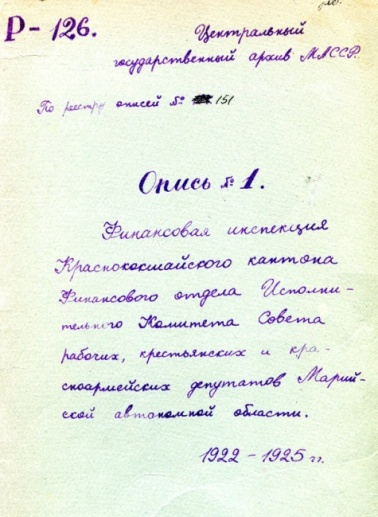 Р-126.
Центральный
государственный архив МАССР.
По реестру описей № 151
Опись № 1.
Финансовая инспекция
Краснококшайского кантона
Финансового отдела Исполни-
тельного Комитета Совета
рабочих, крестьянских и кра-
сноармейских депутатов Марий-
ской автономной области.
1922-1925 гг.